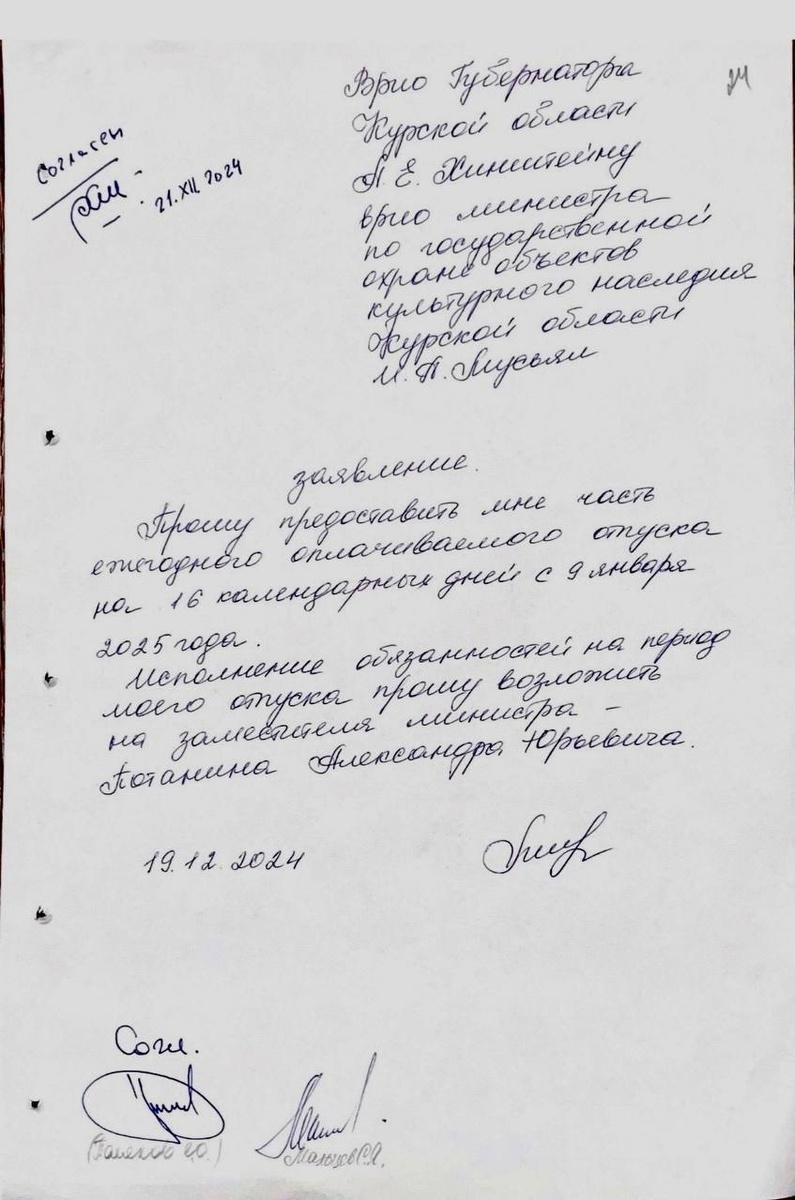 24
Врио Губернатора
Курской области
А. Е. Хинштейну
врио министра
по государственной
охране объектов
культурного наследия
Курской области
И. П. Мусьял
Согласен
21.XII.2024
заявление.
Прошу предоставить мне часть
ежегодного оплачиваемого отпуска
на 16 календарных дней с 9 января
2025 года.
Исполнение обязанностей на период
моего отпуска прошу возложить
на заместителя министра –
Потанина Александра Юрьевича.
19.12.2024
Согл.
Мальцев С.Л.